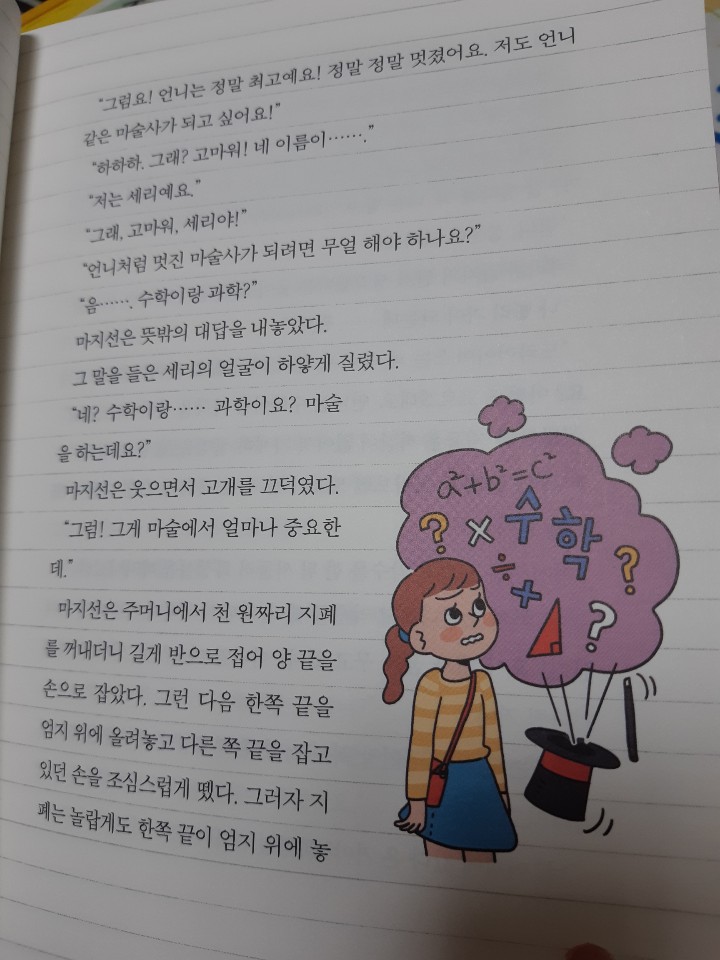 “그럼요! 언니는 정말 최고예요! 정말 정말 멋졌어요. 저도 언니
같은 마술사가 되고 싶어요!”
“하하하. 그래? 고마워! 네 이름이…….”
“저는 세리예요.”
“그래, 고마워, 세리야!”
“언니처럼 멋진 마술사가 되려면 무얼 해야 하나요?”
“음……. 수학이랑 과학?”
마지선은 뜻밖의 대답을 내놓았다.
그 말을 들은 세리의 얼굴이 하얗게 질렸다.
“네? 수학이랑…… 과학이요? 마술
을 하는데요?”
마지선은 웃으면서 고개를 끄덕였다.
“그럼! 그게 마술에서 얼마나 중요한
데.”
마지선은 주머니에서 천 원짜리 지폐
를 꺼내더니 길게 반으로 접어 양 끝을
손으로 잡았다. 그런 다음 한쪽 끝을
엄지 위에 올려놓고 다른 쪽 끝을 잡고
있던 손을 조심스럽게 뗐다. 그러자 지
폐는 놀랍게도 한쪽 끝이 엄지 위에 놓
a²+b²=c²
? × 수학 ?
÷ + ?